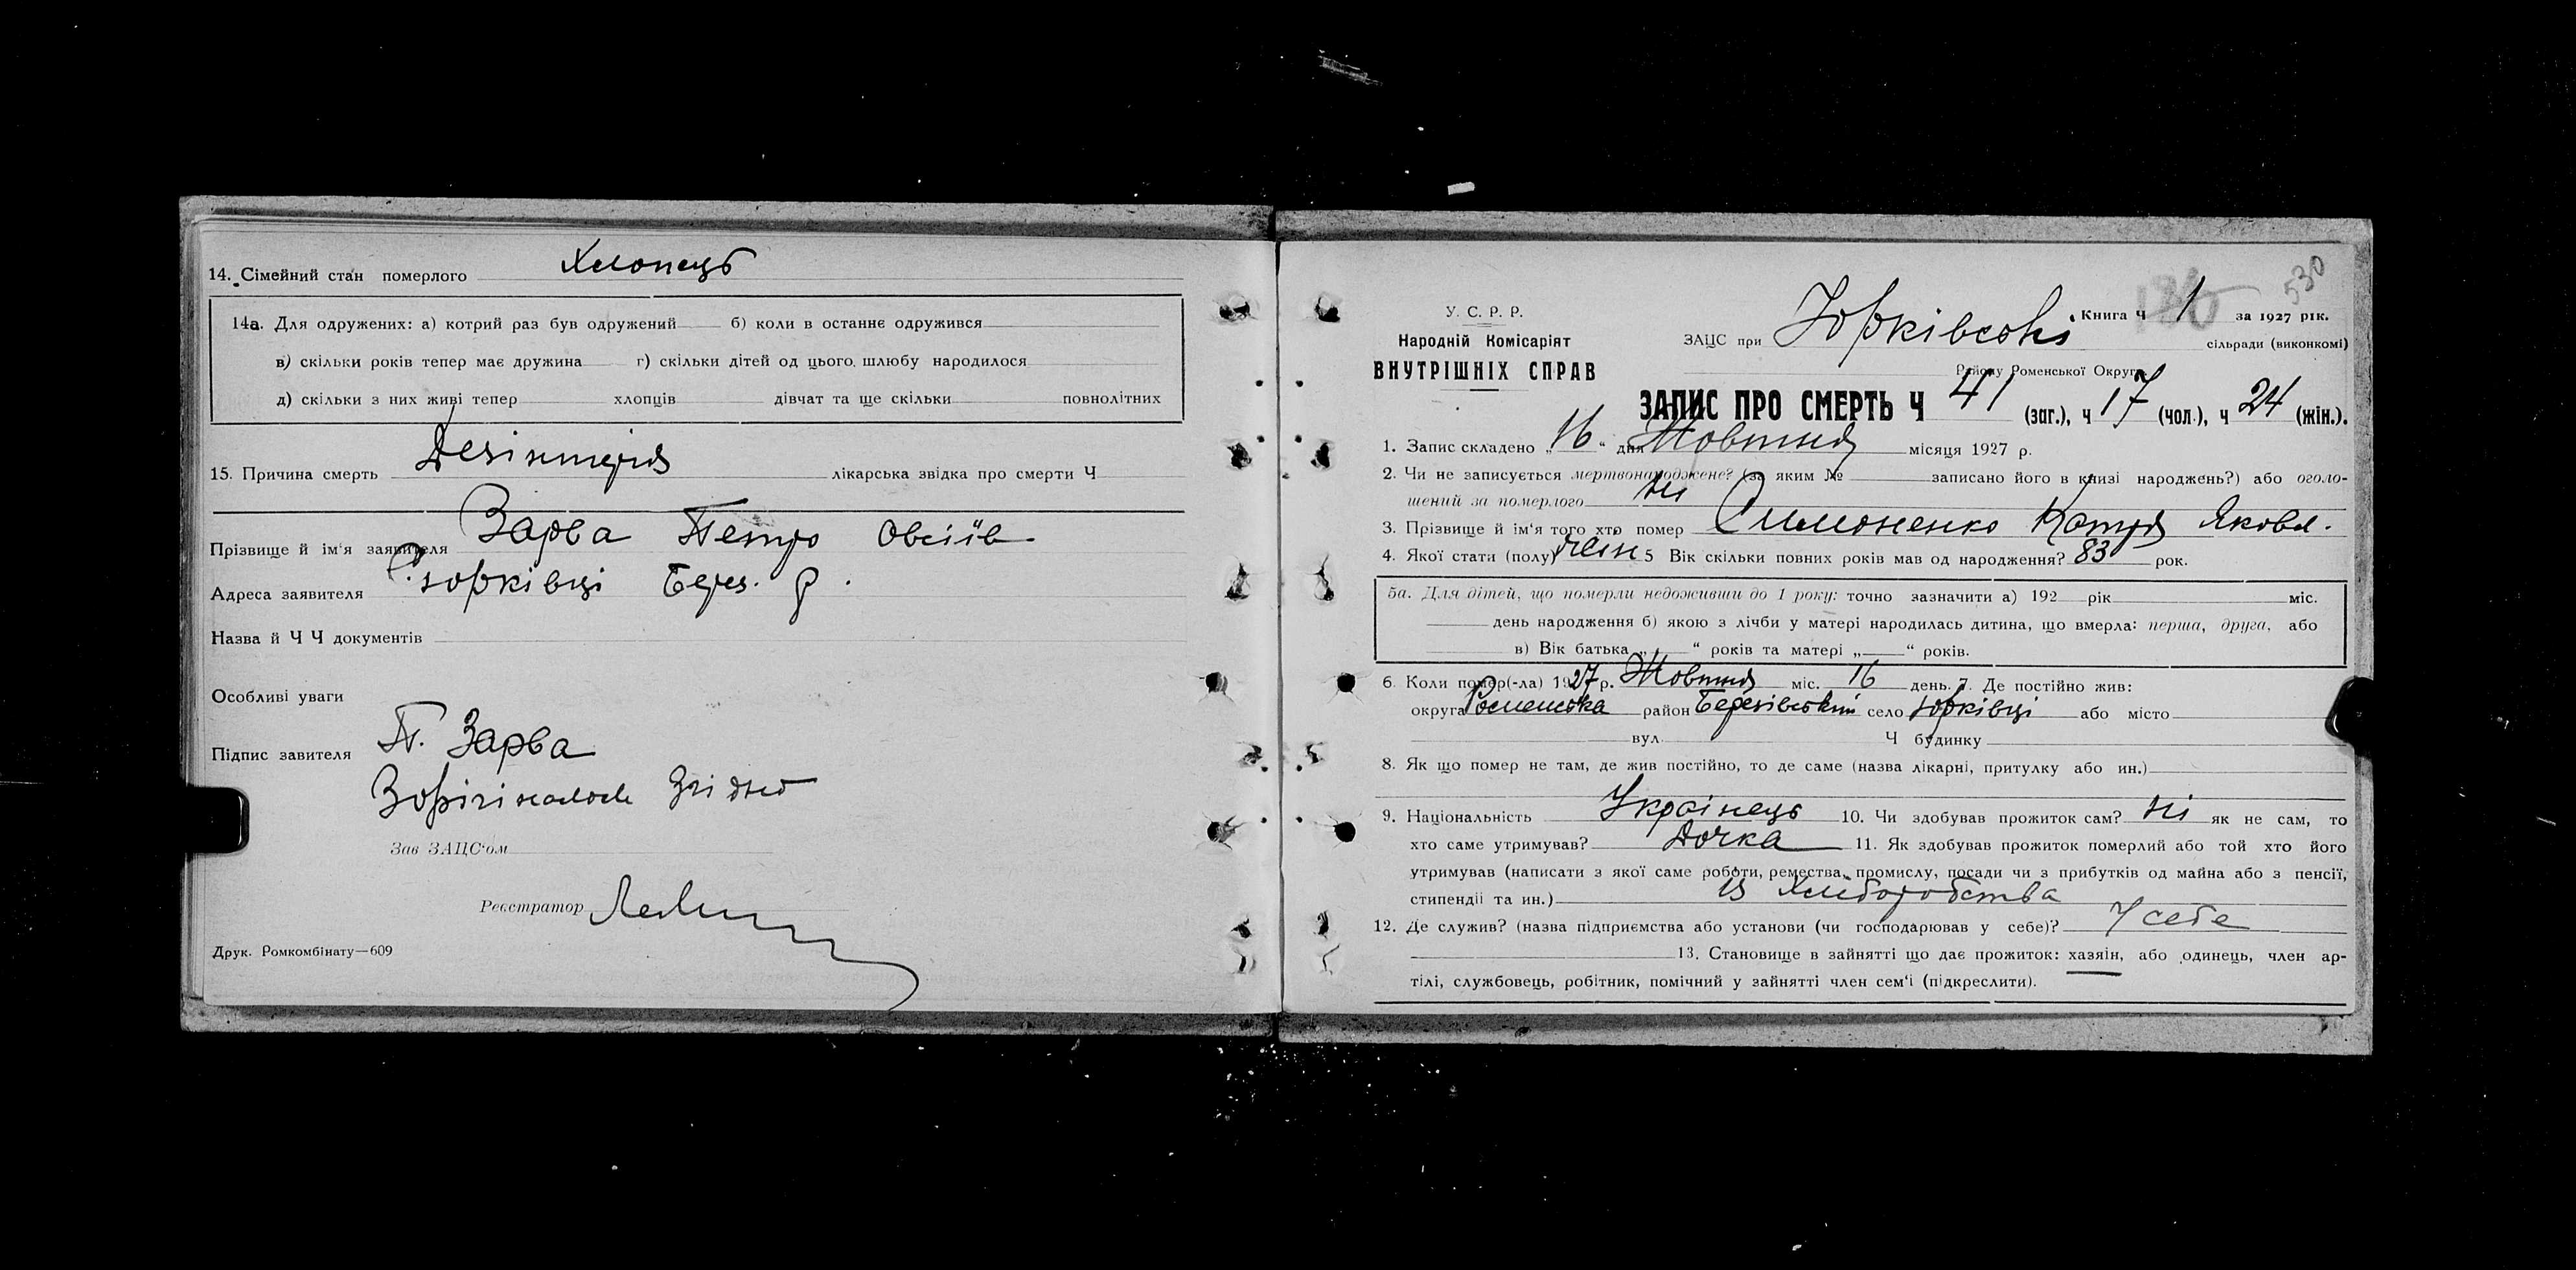 14. Сімейний стан померлого Хлопець
14а. Для одружених: а) котрий раз був одружений б) коли в останнє одружився
в) скільки років тепер має дружина г) скільки дітей од цього шлюбу народилося
д) скільки з них живі тепер хлопців дівчат та ще скільки повнолітних
15. Причина смерть Дезінтерія лікарська звідка про смерти Ч
Прізвище й ім'я заявителя Зарва Петро Овсіїв
Адреса заявителя Юрківці Берез. р.
Назва й Ч Ч документів
Особливі уваги
Підпис завителя П. Зарва
Зорігіналом Згідно
Зав ЗАЦС'ом
Реєстратор
Друк. Ромкомбінату—609
530
У. С. Р. Р.
Народній Комісаріят
ВНУТРІШНІХ СПРАВ
Книга Ч 1 за 1927 рік.
ЗАЦС при Юрківські сільради (виконкомі)
Району Роменської Округи
ЗАПИС ПРО СМЕРТЬ Ч 41 (заг.), ч 17 (чол.), ч 24 (жін.).
1. Запис складено „16" дня Жовтня місяця 1927 р.
2. Чи не записується мертвонароджене? (за яким № записано його в книзі народжень?) або оголо-
шений за померлого ні
3. Прізвище й ім'я того хто помер Симоненко Катря Яковл.
4. Якої стати (полу) жін 5 Вік скільки повних років мав од народження? 83 рок.
5а. Для дітей, що померли недоживши до 1 року: точно зазначити а) 192 рік міс.
день народження б) якою з лічби у матері народилась дитина, що вмерла: перша, друга, або
в) Вік батька „ " років та матері „ " років.
6. Коли помер(-ла) 1927 р. Жовтня міс. 16 день. 7. Де постійно жив:
округа Роменська район Березівський село Юрківці або місто
вул. Ч будинку
8. Як що помер не там, де жив постійно, то де саме (назва лікарні, притулку або ин.)
9. Національність Українець 10. Чи здобував прожиток сам? ні як не сам, то
хто саме утримував? Дочка 11. Як здобував прожиток померлий або той хто його
утримував (написати з якої саме роботи, ремества, промислу, посади чи з прибутків од майна або з пенсії,
стипендії та ин.) із Хліборобства
12. Де служив? (назва підприємства або установи (чи господарював у себе)? У себе
13. Становище в зайнятті що дає прожиток: хазяїн, або одинець, член ар-
тілі, службовець, робітник, помічний у зайнятті член сем'ї (підкреслити).